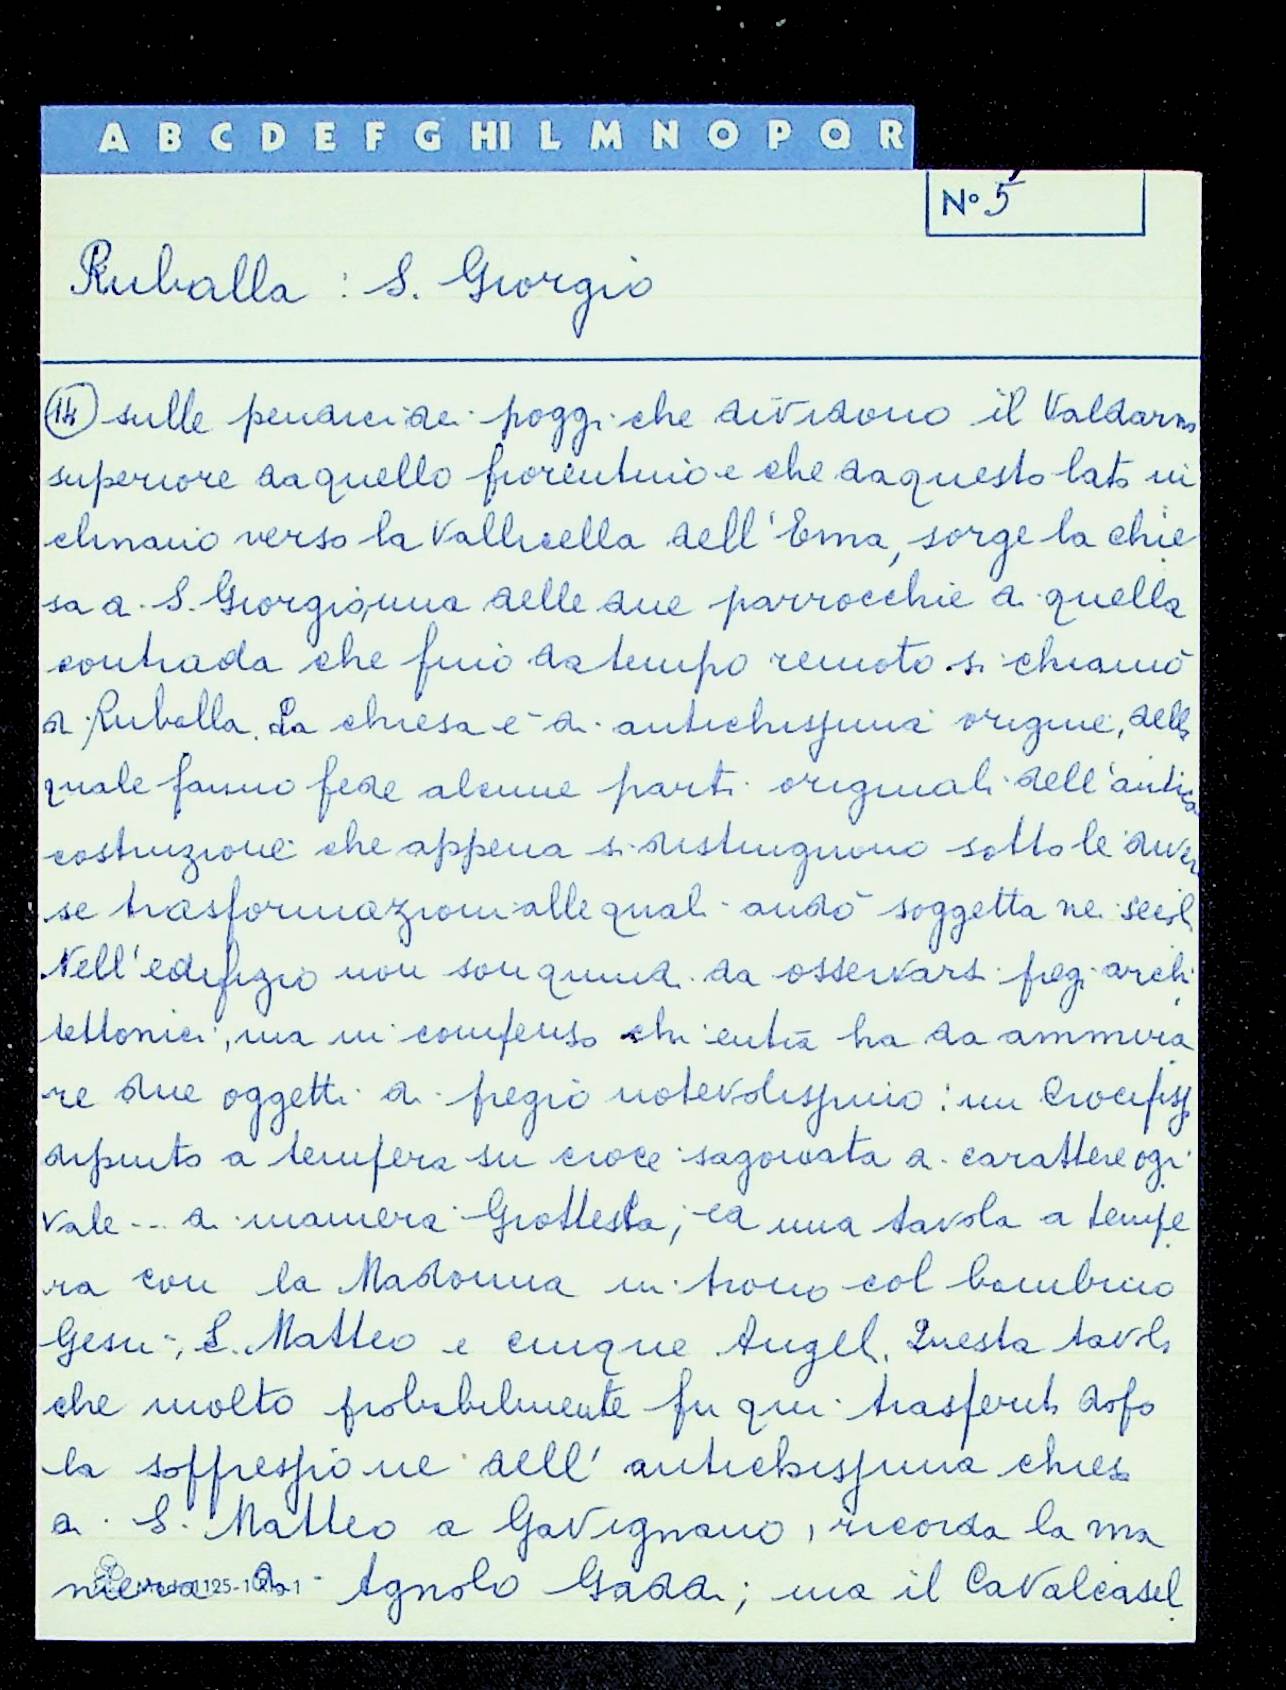 A B C D E F G HI L M N O P Q R
N° 5
Ruballa : S. Giorgio
14 sulle pendici dei poggi che dividono il Valdarno
superiore da quello fiorentino e che da questo lato in
clinano verso la Vallicella dell'Ema, sorge la chie
sa di S. Giorgio, una delle due parrocchie di quella
contrada che fino da tempo remoto si chiamò
di Ruballa. La chiesa è di antichissima origine, della
quale fanno fede alcune parti originali dell'antica
costruzione che appena si distinguono sotto le diver
se trasformazioni alle quali andò soggetta nei secoli.
Nell'edifizio non son quindi da osservarsi pregi archi
tettonici, ma in compenso chi entra ha da ammira
re due oggetti di pregio notevolissimo: un Crocifisso
dipinto a tempera su croce sagomata a carattere ogi
vale ... di maniera Giottesca; ed una tavola a tempe
ra con la Madonna in trono col bambino
Gesù, S. Matteo e cinque Angeli. Questa tavola
che molto probabilmente fu qui trasferita dopo
la soppressione dell'antichissima chiesa
di S. Matteo a Gavignano, ricorda la ma
niera di Agnolo Gaddi; ma il Cavalcasel